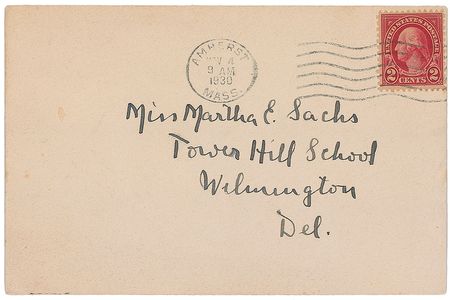 AMHERST
4
9 AM
1930
MASS.
UNITED STATES POSTAGE
2 CENTS 2
Miss Martha E. Sachs
Tower Hill School
Wilmington
Del.